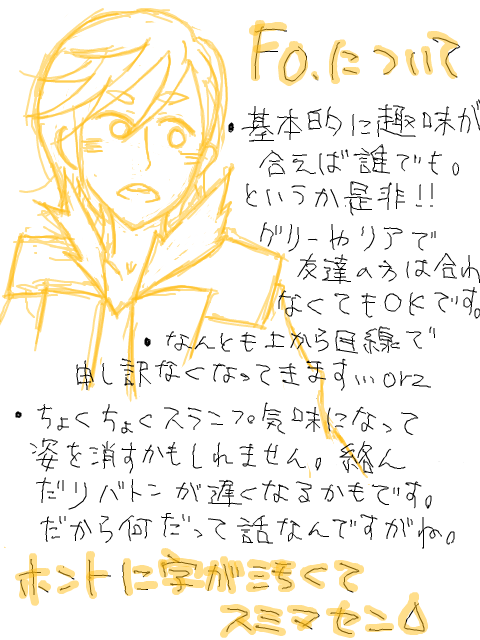 FO.について
・基本的に趣味が
合えば誰でも。
というか是非!!
グリーやリアで
友達の方は合わ
なくてもOKです。
・なんとも上から目線で
申し訳なくなってきます…orz
・ちょくちょくスランプ気味になって
姿を消すかもしれません。絡ん
だりバトンが遅くなるかもです。
だから何だって話なんですがね。
ホントに字が汚くて
スミマセン